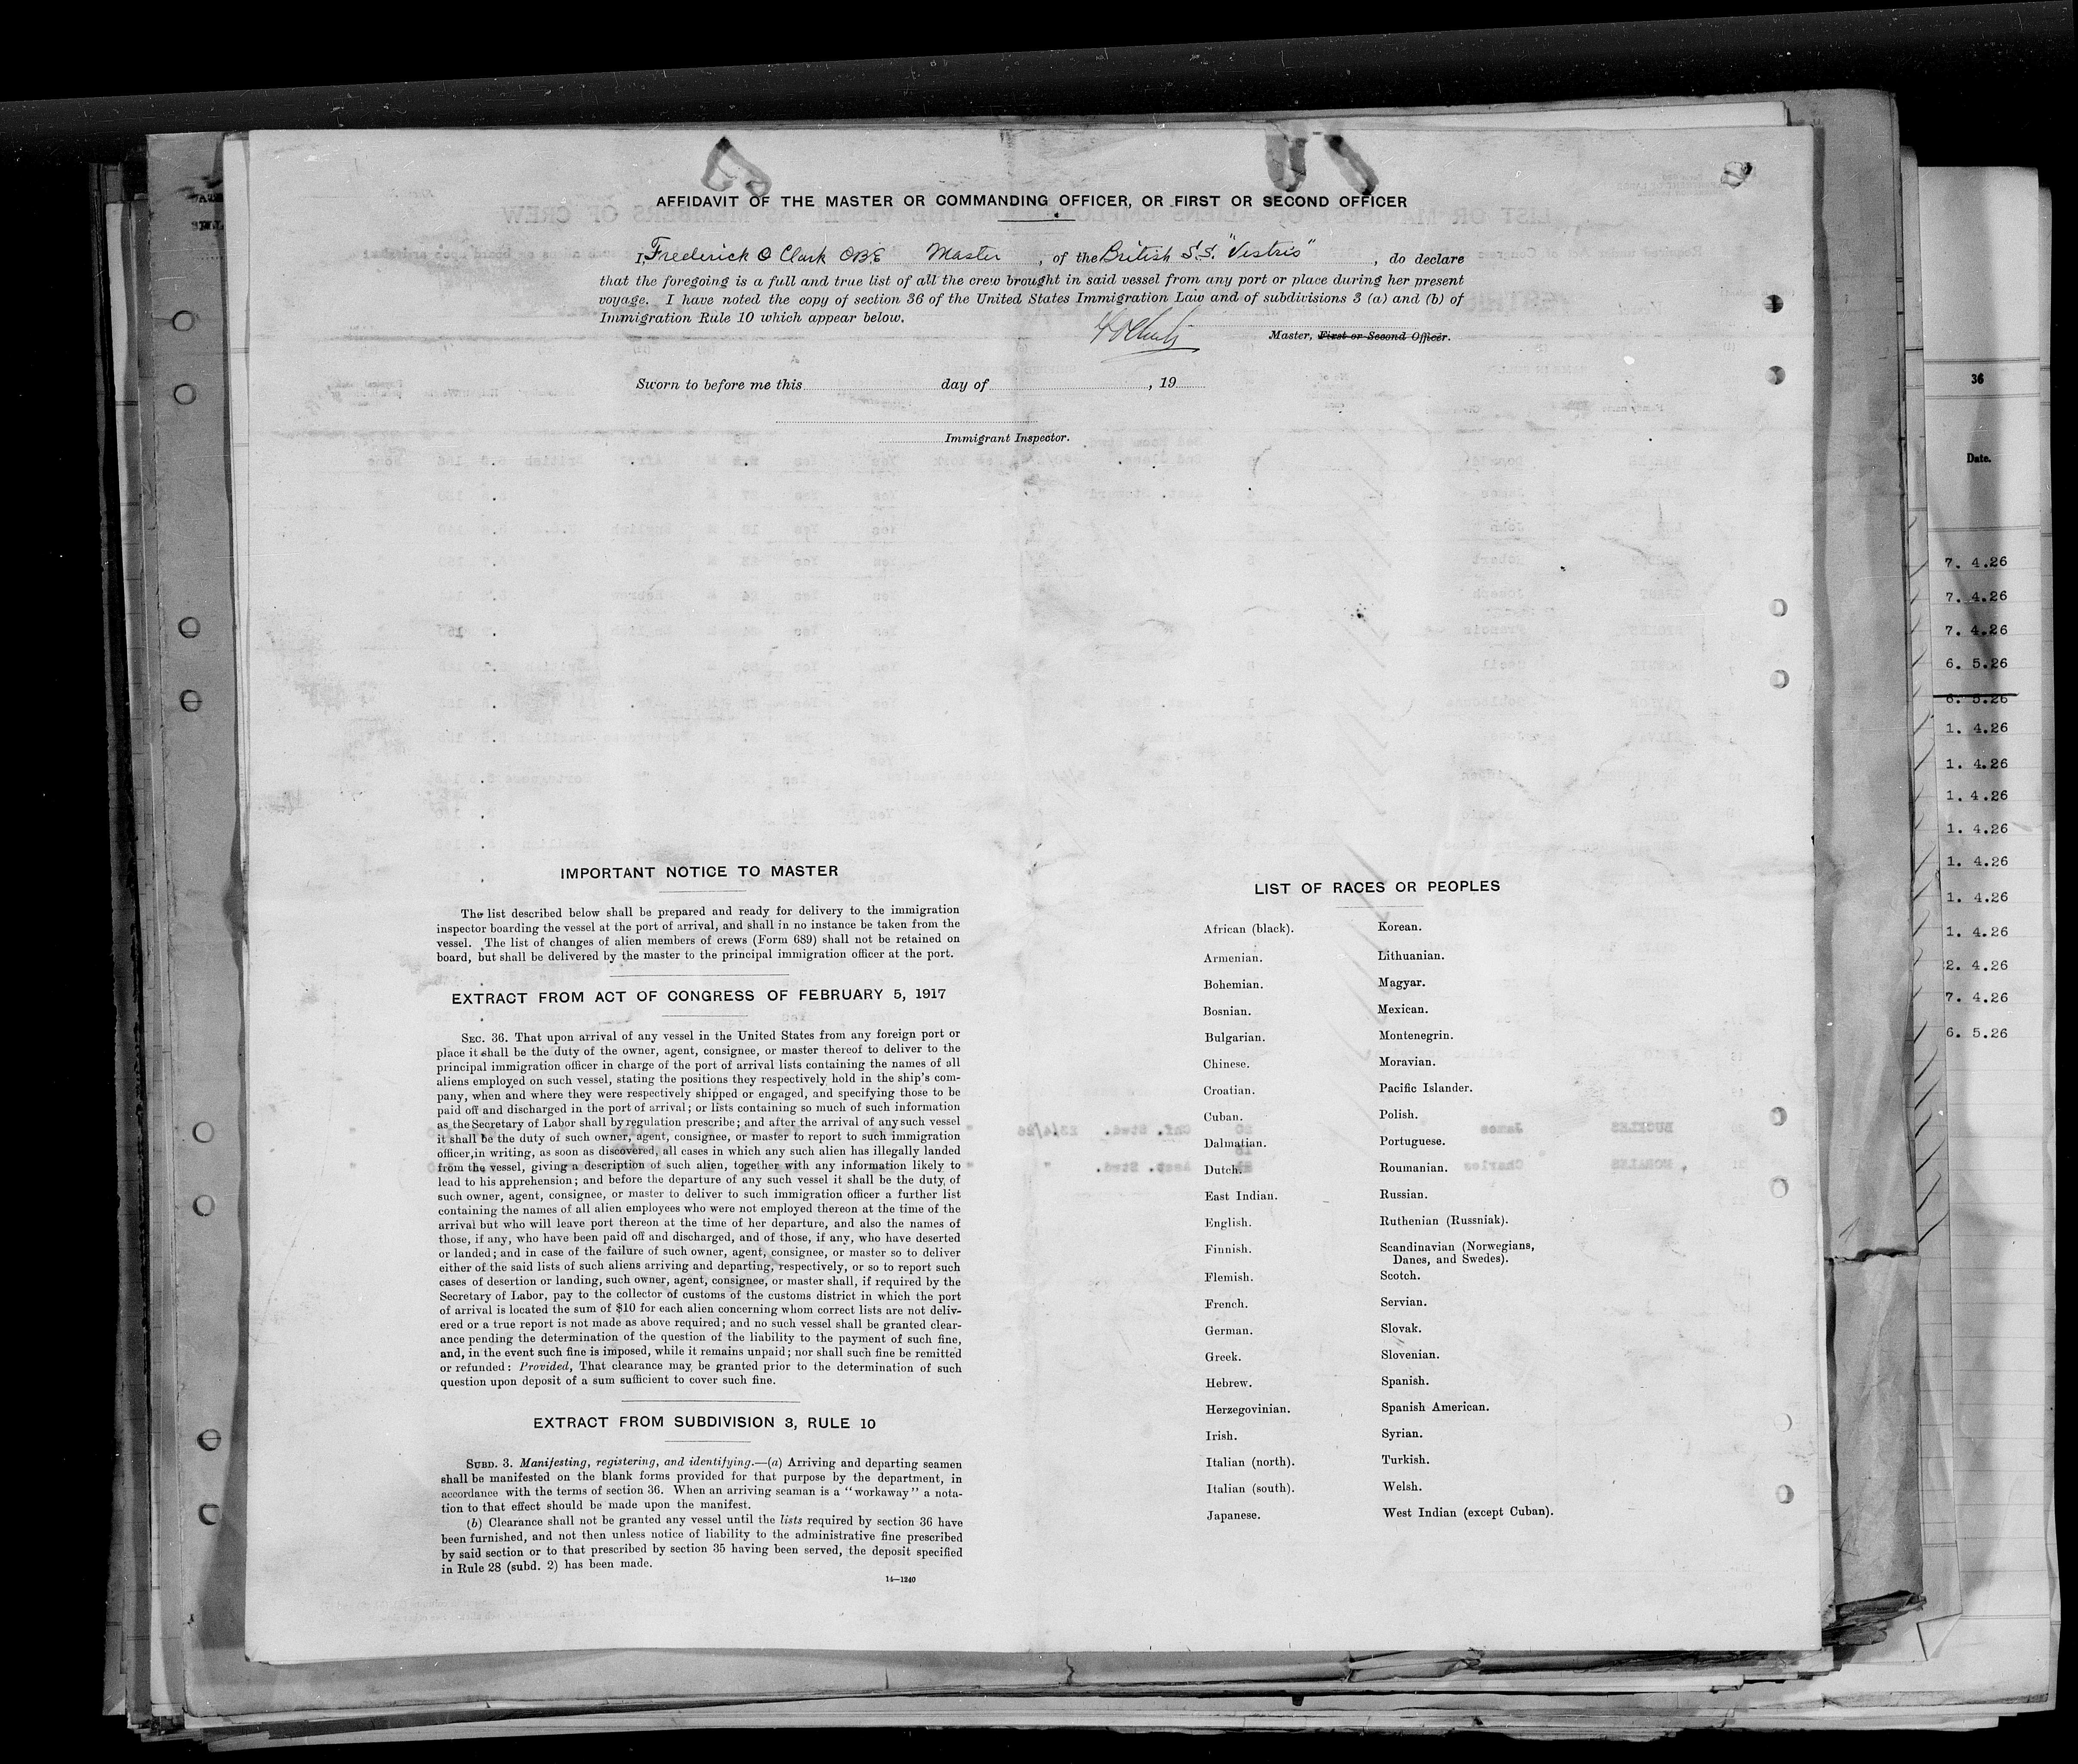 AFFIDAVIT OF THE MASTER OR COMMANDING OFFICER, OR FIRST OR SECOND OFFICER
I, Frederick O Clark OBE Master, of the British S.S. "Vestris", do declare
that the foregoing is a full and true list of all the crew brought in said vessel from any port or place during her present
voyage. I have noted the copy of section 36 of the United States Immigration Law and of subdivisions 3 (a) and (b) of
Immigration Rule 10 which appear below.
Master, First or Second Officer.
Sworn to before me this day of , 19
Immigrant Inspector.
IMPORTANT NOTICE TO MASTER
The list described below shall be prepared and ready for delivery to the immigration
inspector boarding the vessel at the port of arrival, and shall in no instance be taken from the
vessel. The list of changes of alien members of crews (Form 689) shall not be retained on
board, but shall be delivered by the master to the principal immigration officer at the port.
EXTRACT FROM ACT OF CONGRESS OF FEBRUARY 5, 1917
SEC. 36. That upon arrival of any vessel in the United States from any foreign port or
place it shall be the duty of the owner, agent, consignee, or master thereof to deliver to the
principal immigration officer in charge of the port of arrival lists containing the names of all
aliens employed on such vessel, stating the positions they respectively hold in the ship's com-
pany, when and where they were respectively shipped or engaged, and specifying those to be
paid off and discharged in the port of arrival; or lists containing so much of such information
as the Secretary of Labor shall by regulation prescribe; and after the arrival of any such vessel
it shall be the duty of such owner, agent, consignee, or master to report to such immigration
officer, in writing, as soon as discovered, all cases in which any such alien has illegally landed
from the vessel, giving a description of such alien, together with any information likely to
lead to his apprehension; and before the departure of any such vessel it shall be the duty of
such owner, agent, consignee, or master to deliver to such immigration officer a further list
containing the names of all alien employees who were not employed thereon at the time of the
arrival but who will leave port thereon at the time of her departure, and also the names of
those, if any, who have been paid off and discharged, and of those, if any, who have deserted
or landed; and in case of the failure of such owner, agent, consignee, or master so to deliver
either of the said lists of such aliens arriving and departing, respectively, or so to report such
cases of desertion or landing, such owner, agent, consignee, or master shall, if required by the
Secretary of Labor, pay to the collector of customs of the customs district in which the port
of arrival is located the sum of $10 for each alien concerning whom correct lists are not deliv-
ered or a true report is not made as above required; and no such vessel shall be granted clear-
ance pending the determination of the question of the liability to the payment of such fine,
and, in the event such fine is imposed, while it remains unpaid; nor shall such fine be remitted
or refunded: Provided, That clearance may be granted prior to the determination of such
question upon deposit of a sum sufficient to cover such fine.
EXTRACT FROM SUBDIVISION 3, RULE 10
SUBD. 3. Manifesting, registering, and identifying.—(a) Arriving and departing seamen
shall be manifested on the blank forms provided for that purpose by the department, in
accordance with the terms of section 36. When an arriving seaman is a "workaway" a nota-
tion to that effect should be made upon the manifest.
(b) Clearance shall not be granted any vessel until the lists required by section 36 have
been furnished, and not then unless notice of liability to the administrative fine prescribed
by said section or to that prescribed by section 35 having been served, the deposit specified
in Rule 28 (subd. 2) has been made.
14—1240
LIST OF RACES OR PEOPLES
African (black).
Armenian.
Bohemian.
Bosnian.
Bulgarian.
Chinese.
Croatian.
Cuban.
Dalmatian.
Dutch.
East Indian.
English.
Finnish.
Flemish.
French.
German.
Greek.
Hebrew.
Herzegovinian.
Irish.
Italian (north).
Italian (south).
Japanese.
Korean.
Lithuanian.
Magyar.
Mexican.
Montenegrin.
Moravian.
Pacific Islander.
Polish.
Portuguese.
Roumanian.
Russian.
Ruthenian (Russniak).
Scandinavian (Norwegians,
Danes, and Swedes).
Scotch.
Servian.
Slovak.
Slovenian.
Spanish.
Spanish American.
Syrian.
Turkish.
Welsh.
West Indian (except Cuban).
36
Date.
7. 4.26
7. 4.26
7. 4.26
6. 5.26
6. 5.26
1. 4.26
1. 4.26
1. 4.26
1. 4.26
1. 4.26
1. 4.26
1. 4.26
2. 4.26
7. 4.26
6. 5.26